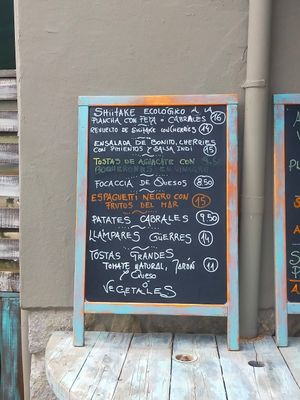 SHIITAKE ECOLÓGICO A LA
PLANCHA CON FETA o CABRALES 16
REVUELTO DE SHIITAKE CON CHERRIES 15
ENSALADA DE BONITO, CHERRIES
CON PIMIENTOS Y SALSA 15
TOSTAS DE AGUACATE CON 9.50
BOQUERONES EN VINAGRE
FOCACCIA DE QUESOS 8.50
ESPAGUETI NEGRO CON
FRUTOS DEL MAR 15
PATATES CABRALES 9.50
LLAMPARES GUERRES 14
TOSTAS GRANDES
TOMATE NATURAL, JAMÓN 11
o QUESO
o
VEGETALES